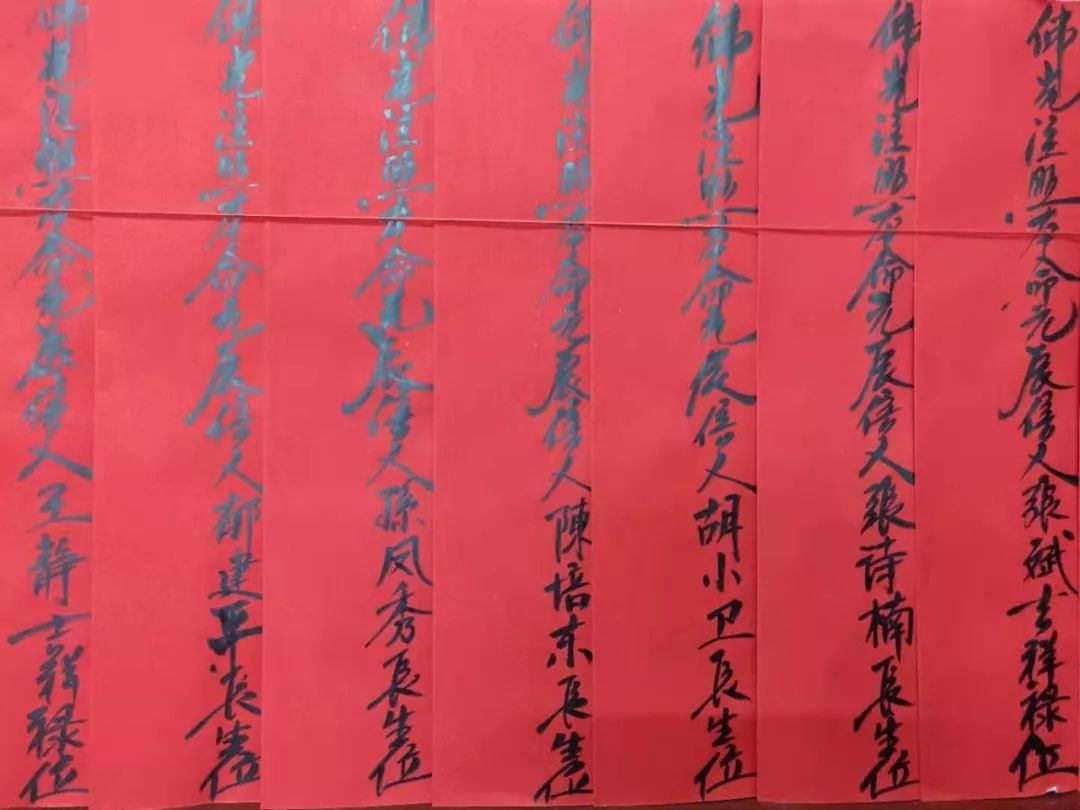 佛光注照本命元辰信人張斌吉祥禄位
佛光注照本命元辰信人張诗楠長生位
佛光注照本命元辰信人胡小卫長生位
佛光注照本命元辰信人陳培东長生位
佛光注照本命元辰信人孫凤秀長生位
佛光注照本命元辰信人郁建平長生位
佛光注照本命元辰信人王静吉祥禄位